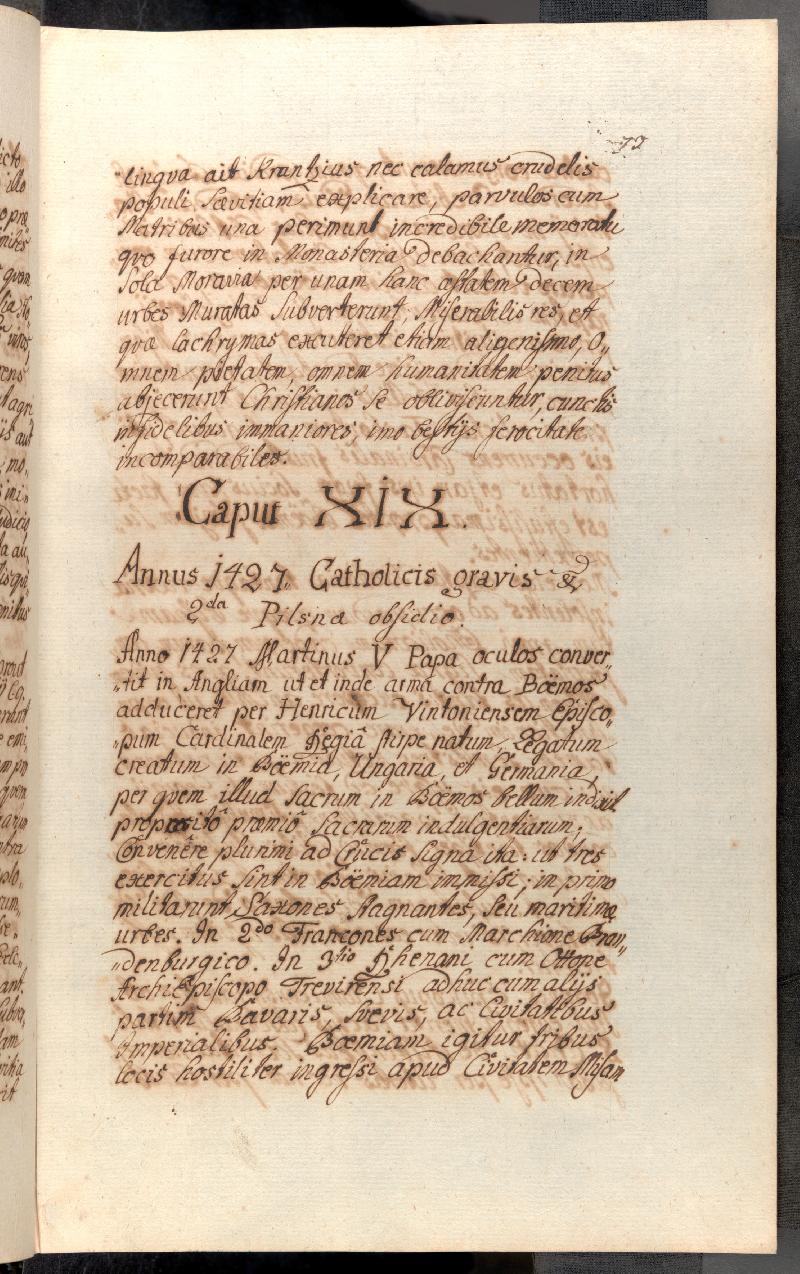 72
lingva ait Krantzius nec calamus crudelis
populi sævitiam explicare, parvulos cum
Matribus una perimunt incredibile memoratu
qvo furore in Monasteria debachantur, in
sola Moravia per unam hanc æstatem decem
urbes Muratas subverterunt, Miserabilis res, et
qvæ lachrymas excuteret etiam alienissimo, O„
mnem pietatem, omnem humanitatem penitus
abjecerunt Christianos se obliviscuntur, cunctis
infidelibus immaniores, imo bestijs ferocitate
incomparabiles.
Caput XIX.
Annus 1427. Catholicis gravis &
2da Pilsnæ obsidio.
Anno 1427 Martinus V Papa oculos conver„
„tit in Angliam ut et inde arma contra Boëmos
adduceret per Henricum Vintoniensem Episco„
„pum Cardinalem Regiâ stirpe natum, Legatum
creatum in Boëmia, Ungaria, et Germania,
per qvem illud sacrum in Boëmos bellum indixit
præmiô sacrarum indulgentiarum;
Convenêre plurimi ad Crucis signa ita: ut tres
exercitus sint in Boëmiam immissi; in primo
militarunt Saxones stagnantes, seu maritimæ
urbes. In 2do Francones cum Marchione Bran„
„denburgico. In 3tio Rhenani cum Ottone
ArchiEpiscopo Trevirensi adhuc cum alijs
partim Bavaris, svevis, ac Civitatibus
Imperialibus. Boemiam igitur tribus
locis hostiliter ingressi apud Civitatem Misam